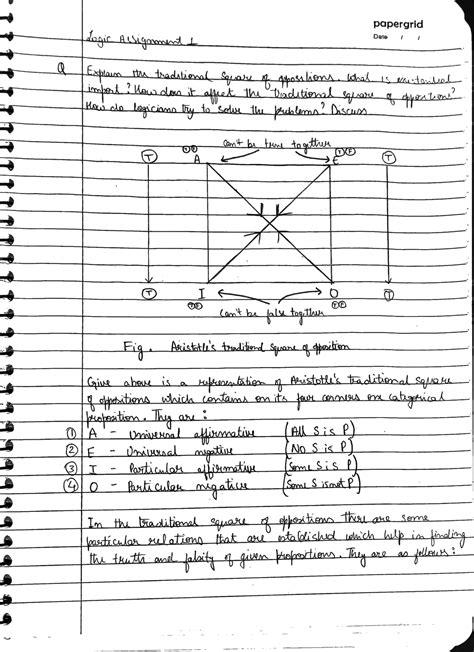 papergrid
Date / /
Logic Assignment 1
Q Explain the traditional square of oppositions. What is existential
import? How does it affect the traditional square of opposition?
How do logicians try to solve the problems? Discuss.
can't be true together
T A E T
T I O T
Can't be false together
Fig. Aristotle's traditional Square of opposition
Give above is a representation of Aristotle's traditional square
of oppositions which contains on its four corners one categorical
proposition. They are :
1 A - Universal affirmative (All S is P)
2 E - Universal negative (No S is P)
3 I - Particular affirmative (Some S is P)
4 O - Particular negative (Some S is not P)
In the traditional square of oppositions there are some
particular relations that are established which help in finding
the truth and falsity of given propositions. They are as follows: